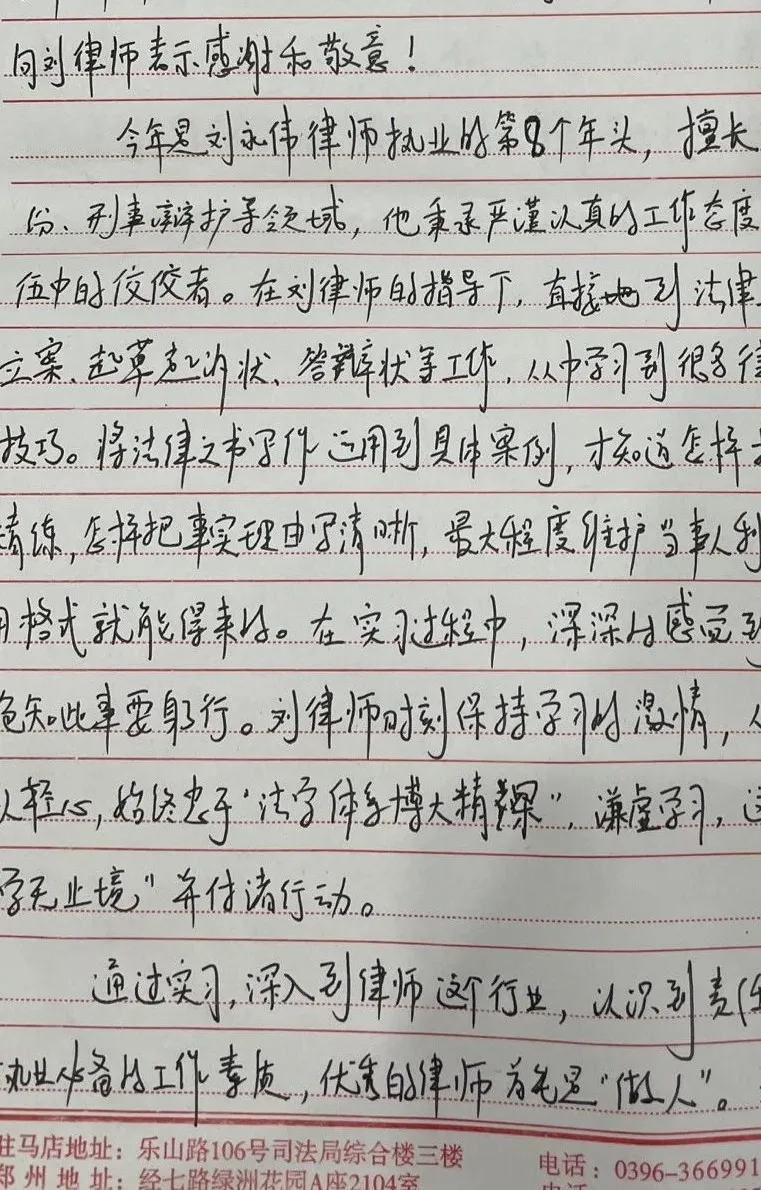 向刘律师表示感谢和敬意！
今年是刘永伟律师执业的第8个年头，擅长
份、刑事辩护等领域，他秉承严谨认真的工作态度
伍中的佼佼者。在刘律师的指导下，直接地到法律
立案、起草起诉状、答辩状等工作，从中学习到很多
技巧。将法律文书写作运用到具体案例，才知道怎样
精练，怎样把事实理由写清晰，最大程度维护当事人利
用格式就能得来的。在实习过程中，深深的感觉到
知此事要躬行。刘律师时刻保持学习的激情，
以轻心，始终忠于“法学体系博大精深”，谦虚学习，这
学无止境”并付诸行动。
通过实习，深入到律师这个行业，认识到责任
执业必备的工作素质，优秀的律师首先是“做人”。
驻马店地址：乐山路106号司法局综合楼三楼
电话：0396-366991
郑州地址：经七路绿洲花园A座2104室